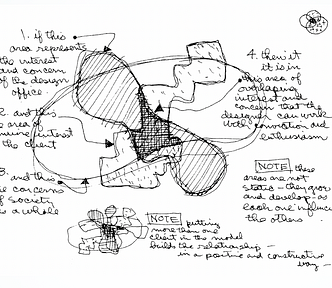 1. if this
area represents
the interest
and concern
of the design
office.
2. and this
area of
genuine interest
to the client
3. and this
the concerns
of society
as a whole
4. then it
it is in
this area of
overlaping
interest and
concern that the
designer can work
with conviction and
enthusiasm
NOTE these
areas are not
static - they grow
and develop - as
each one influences
the others
NOTE putting
more than one
client in the model
builds the relationship -
in a positive and constructive
way -